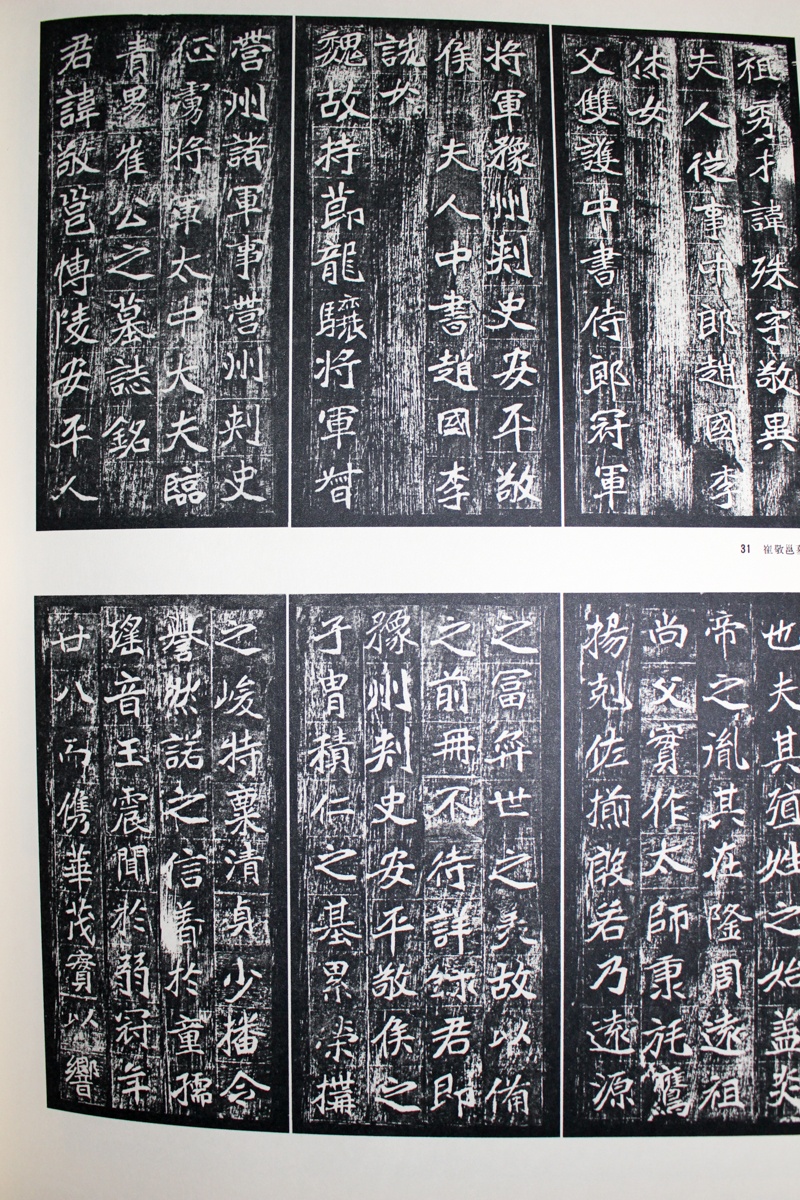 祖秀才諱殊字敬異
夫人從事中郎趙國李
休女
父雙護中書侍郎冠軍
將軍豫州刾史安平敬
侯 夫人中書趙國李
詵女
魏故持莭龍驤將軍督
營州諸軍事營州刾史
征虜將軍太中大夫臨
青男崔公之墓誌銘
君諱敬邕博陵安平人
31 崔敬邕
也夫其殖姓之始盖炎
帝之胤其在隆周遠祖
尚父實作太師秉旄鷹
揚剋佐揃殷若乃遠源
之富弈世之美故以備
之前冊不待詳錄君即
豫州刾史安平敬侯之
子胄積仁之基累榮構
之峻特稟清貞少播令
譽然諾之信著於童孺
瑤音玉震聞於弱冠年
廿八而儁華茂實以響